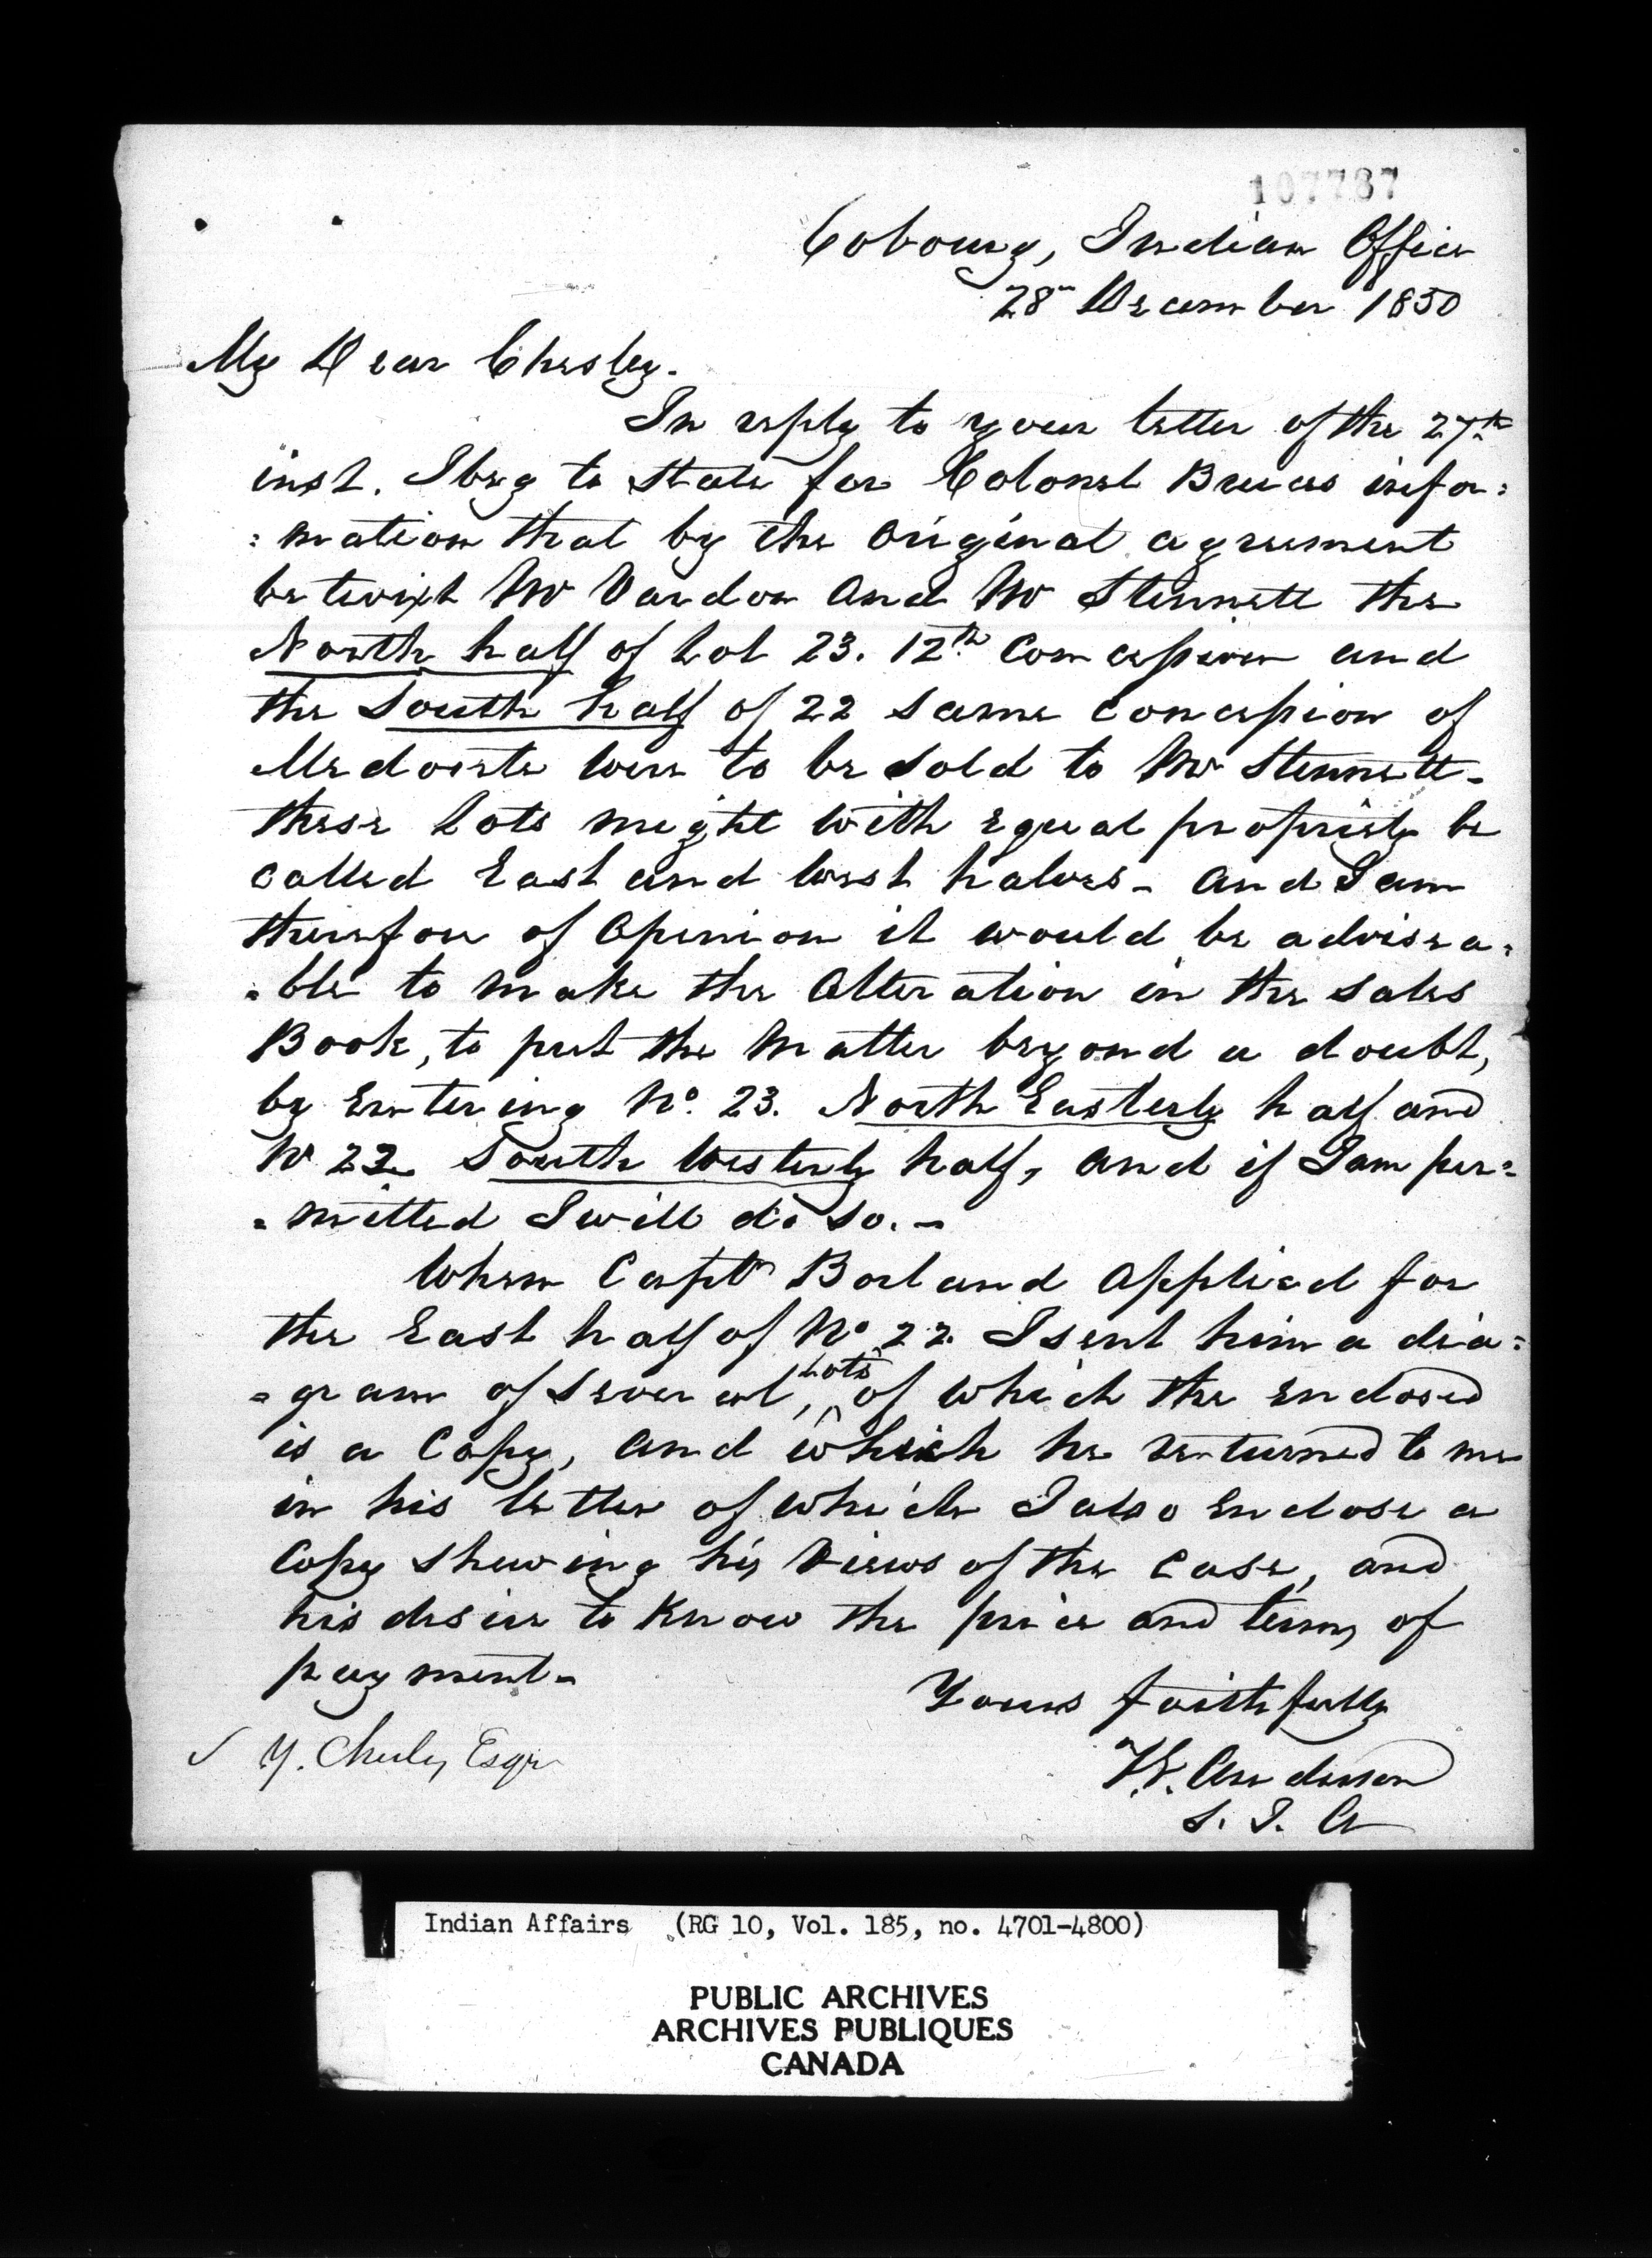 107787
Cobourg, Indian Office
28th December 1850
My Dear Chesley.
In reply to your letter of the 27th
inst. I beg to state for Colonel Bruces infor:
:mation that by the original agreement
betwixt Mr Vardon and Mr Stennett the
North half of Lot 23. 12th Concession and
the South half of 22 same concession of
Medonte were to be sold to Mr Stennett-
these Lots might with equal propriety be
called East and West halves - and I am
therefore of Opinion it would be advisea:
:ble to make the Alteration in the Sales
Book, to put the matter beyond a doubt,
by Entering No. 23. North Easterly half and
No 22 South Westerly half, and if I am per:
:mitted I will do so. -
When Captn Borland applied for
the East half of No 22. I sent him a dia:
:gram of several, Lots of which the enclosed
is a Copy, and which he returned to me
in his letter of which I also Enclose a
Copy shewing his Views of the Case, and
his desire to Know the price and terms of
payment-
Yours faithfully
T.G. Anderson
S. I. A
Y. Chesley Esqr
Indian Affairs (RG 10, Vol. 185, no. 4701-4800)
PUBLIC ARCHIVES
ARCHIVES PUBLIQUES
CANADA